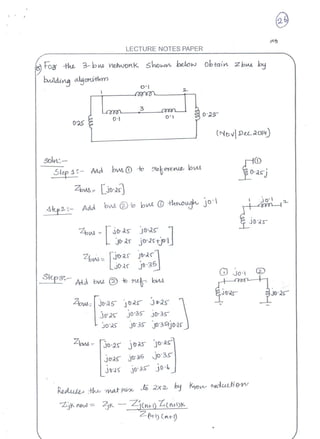 25
LECTURE NOTES PAPER
For the 3-bus network shown below obtain Zbus by
building algorithm
0.1
1
2
3
0.1
0.1
0.25
0.25
(Nov/Dec 2014)
Soln:-
Step 1:- Add bus ① to reference bus
①
0.25j
Zbus = [j0.25]
Step 2:- Add bus ② to bus ① through j0.1
1 j0.1 2
j0.25
Zbus = [j0.25 j0.25
j0.25 j0.25+j0.1]
Zbus = [j0.25 j0.25
j0.25 j0.35]
Step 3:- Add bus ② to ref- bus
① j0.1 ②
j0.25 j0.25
Zbus = [j0.25 j0.25 j0.25
j0.25 j0.35 j0.35
j0.25 j0.35 j0.35+j0.25]
Zbus = [j0.25 j0.25 j0.25
j0.25 j0.35 j0.35
j0.25 j0.35 j0.6]
Reduce the matrix to 2x2 by Kron reduction
Zjk new = Zjk - Zj(n+1) Z(n+1)k
Z(n+1)(n+1)